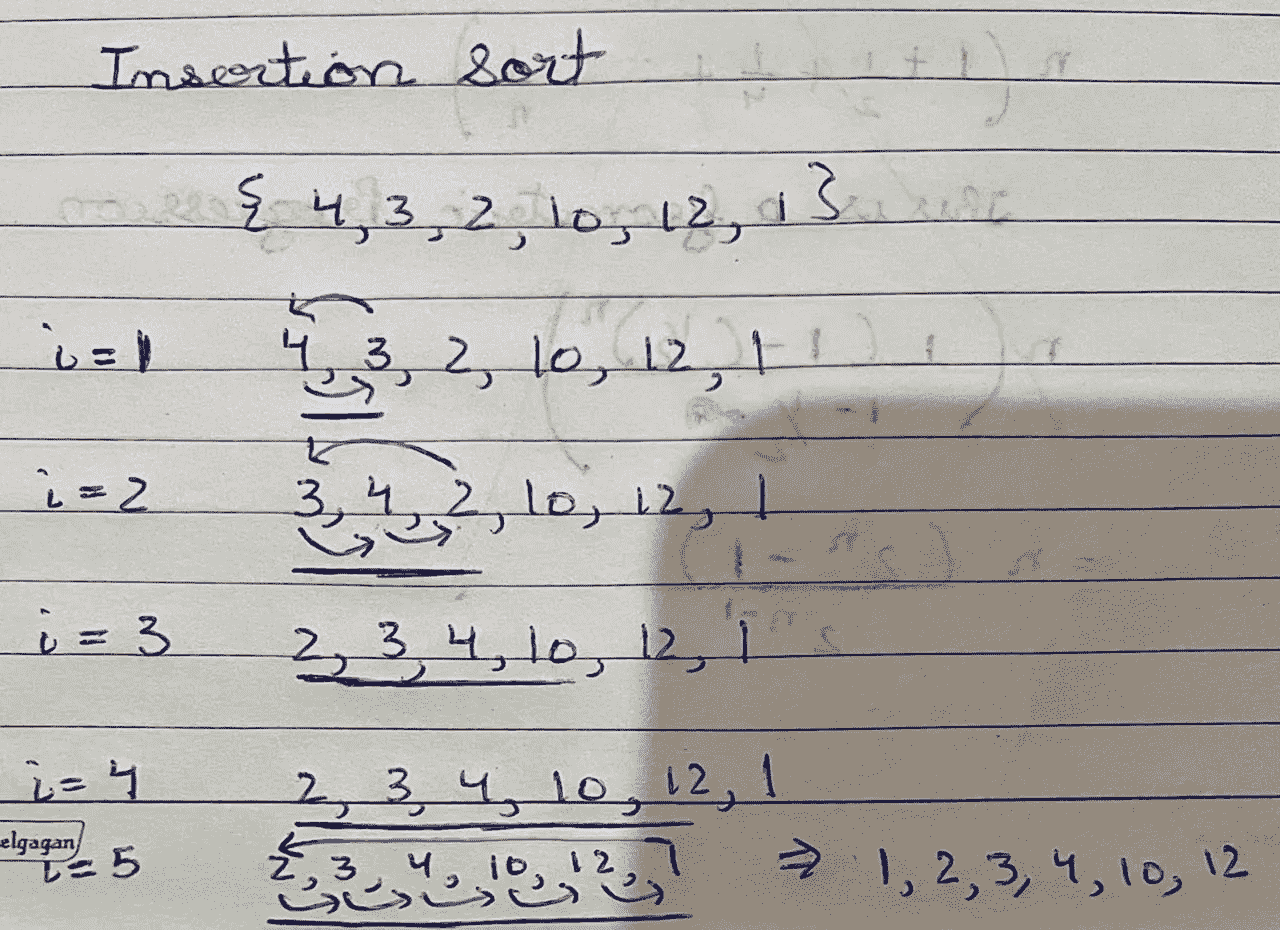 Insertion Sort
{ 4, 3, 2, 10, 12, 1 }
i = 1 4, 3, 2, 10, 12, 1
i = 2 3, 4, 2, 10, 12, 1
i = 3 2, 3, 4, 10, 12, 1
i = 4 2, 3, 4, 10, 12, 1
elgagan
i = 5 2, 3, 4, 10, 12, 1 ⇒ 1, 2, 3, 4, 10, 12